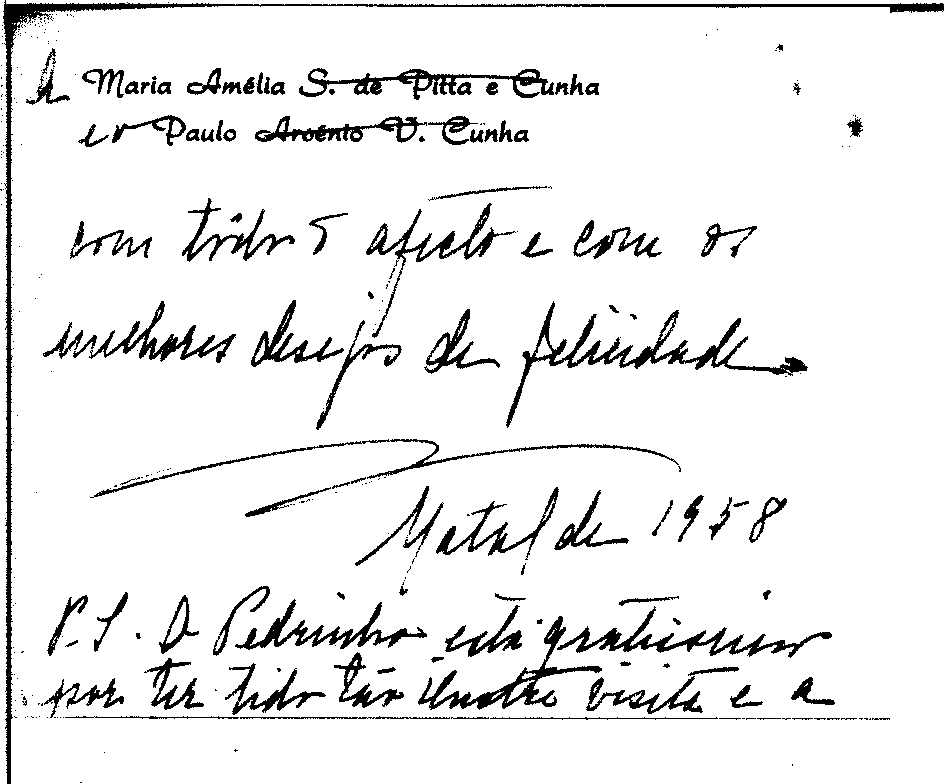 A Maria Amélia S. de Pitta e Cunha
e o Paulo Arsénio V. Cunha
com todo o afecto e com os
melhores desejos de felicidade
Natal de 1958
P.S. O Pedrinho está gratíssimo
por ter tido tão ilustre visita e a